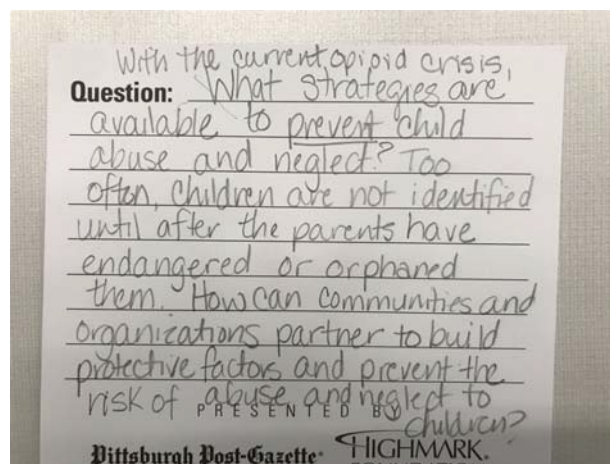 With the current opipid crisis,
Question: What strategies are
available to prevent child
abuse and neglect? Too
often, children are not identified
until after the parents have
endangered or orphaned
them. How can communities and
organizations partner to build
protective factors and prevent the
risk of abuse and neglect to
PRESENTED BY
children?
Pittsburgh Post-Gazette
HIGHMARK.